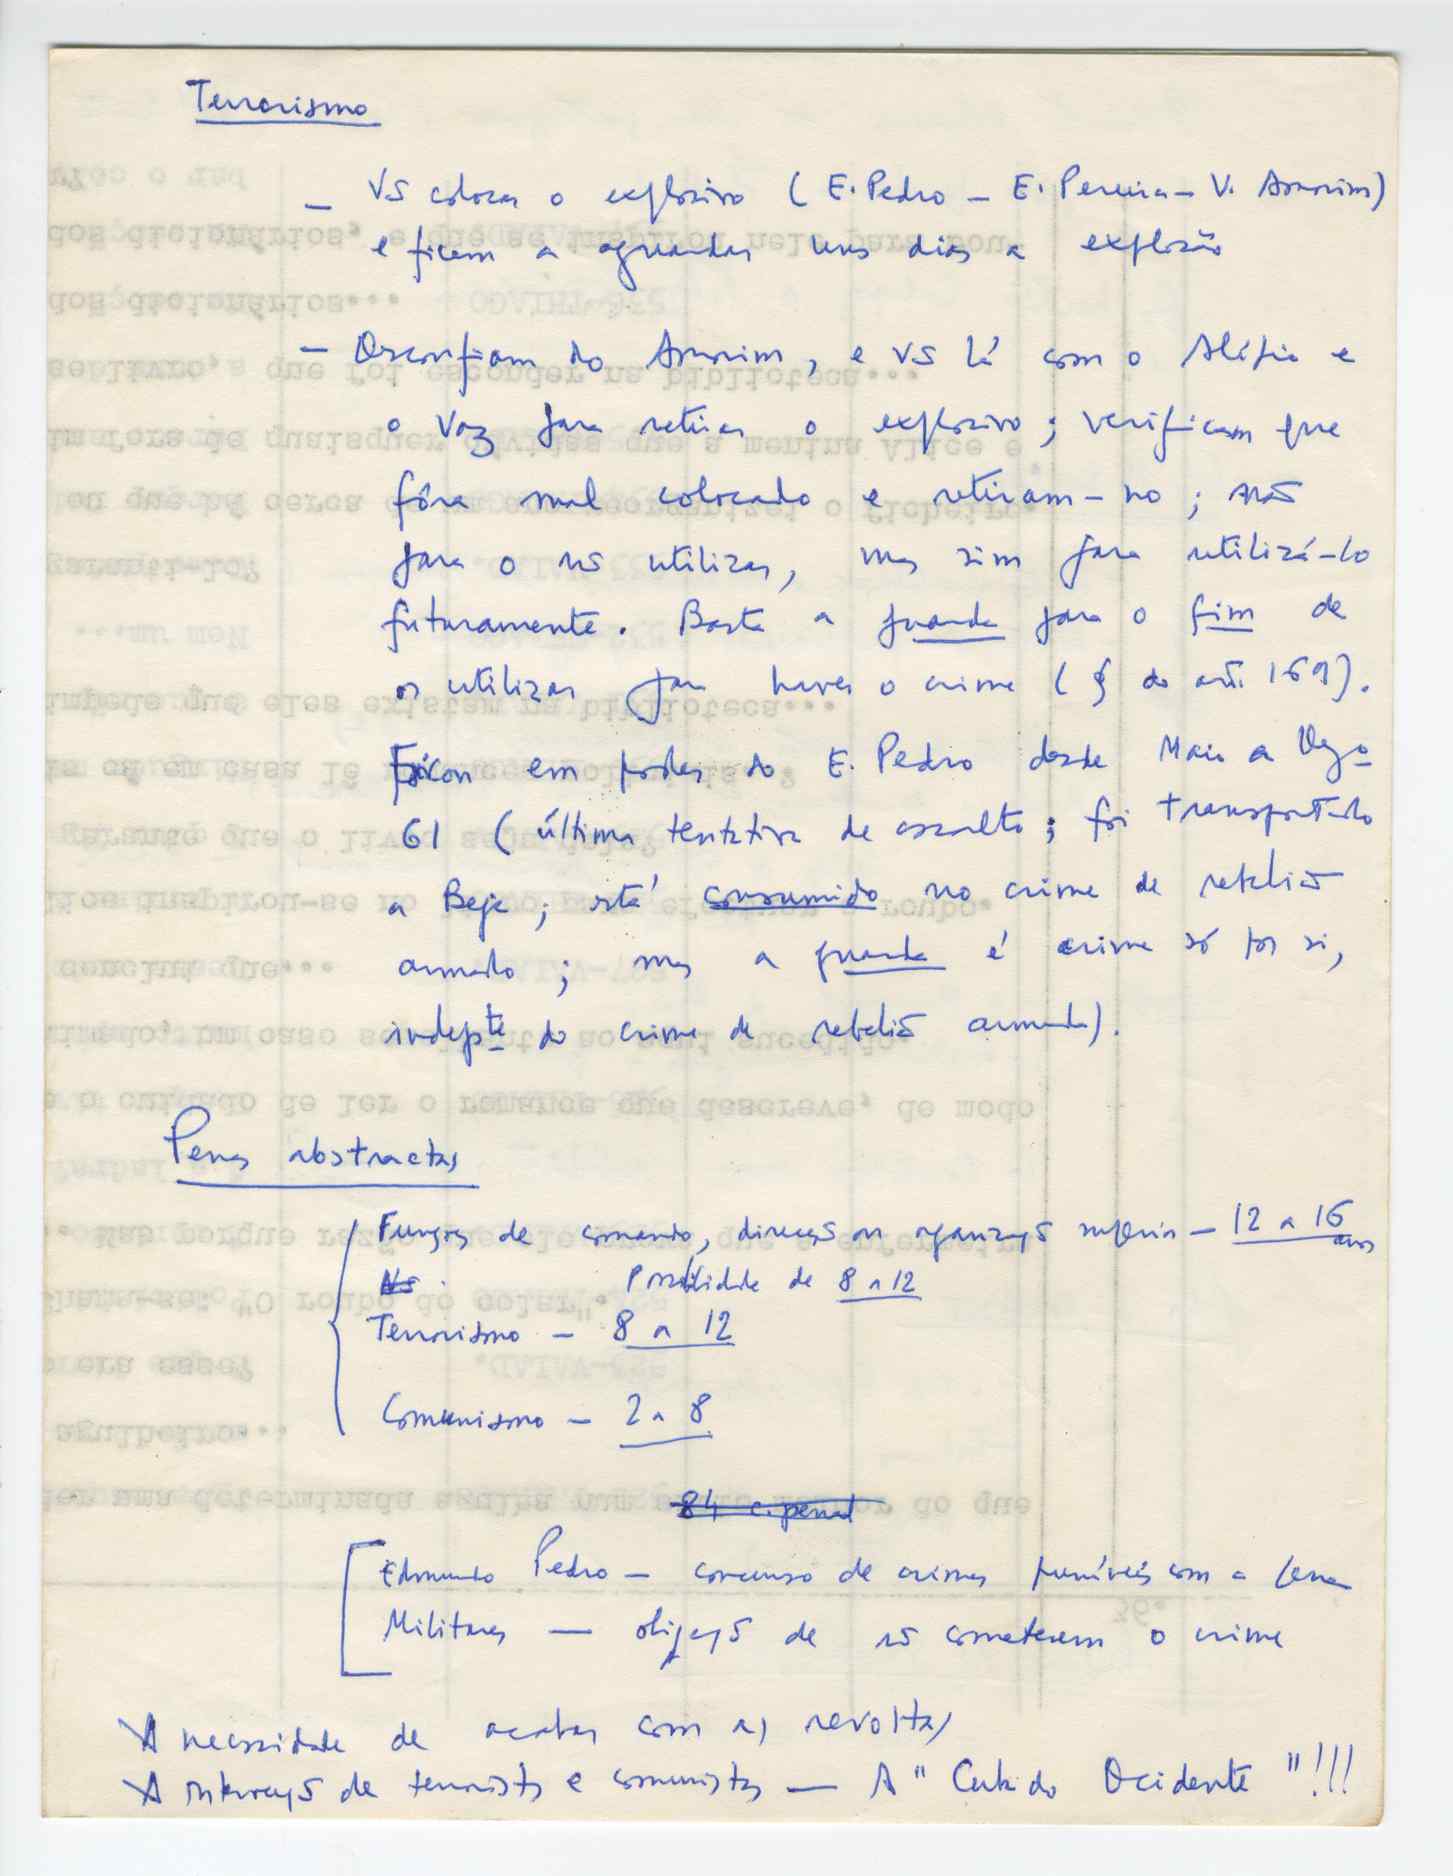 Terrorismo
— VS colocar o explosivo (E. Pedro – E. Pereira – V. Amorim)
e ficam a aguardar uns dias a explosão
— Desconfiam do Amorim, e VS lá com o Alípio e
o Vaz para retirar o explosivo; verificam que
fôra mal colocado e retiram-no; não
para o ns utilizar, mas sim para utilizá-lo
futuramente. Basta a guarda para o fim de
os utilizar para haver o crime (§ do art. 169).
Ficou em poder do E. Pedro desde Maio a Dez.o
61 (última tentativa de assalto; foi transportado
a Beja; está consumido no crime de rebelião
armado; mas a guarda é crime só por si,
indepte do crime de rebelião armada).
Penas abstractas
Funções de comando, direcção ou organização superior – 12 a 16 anos
Ns Possibilidade de 8 a 12
Terrorismo – 8 a 12
Comunismo – 2 a 8
84 c. penal
Edmundo Pedro – concurso de crimes puníveis com a pena
Militares — obrigação de não cometerem o crime
A necessidade de acabar com as revoltas
A de terroristas e comunistas — A "Cuba do Ocidente"!!!